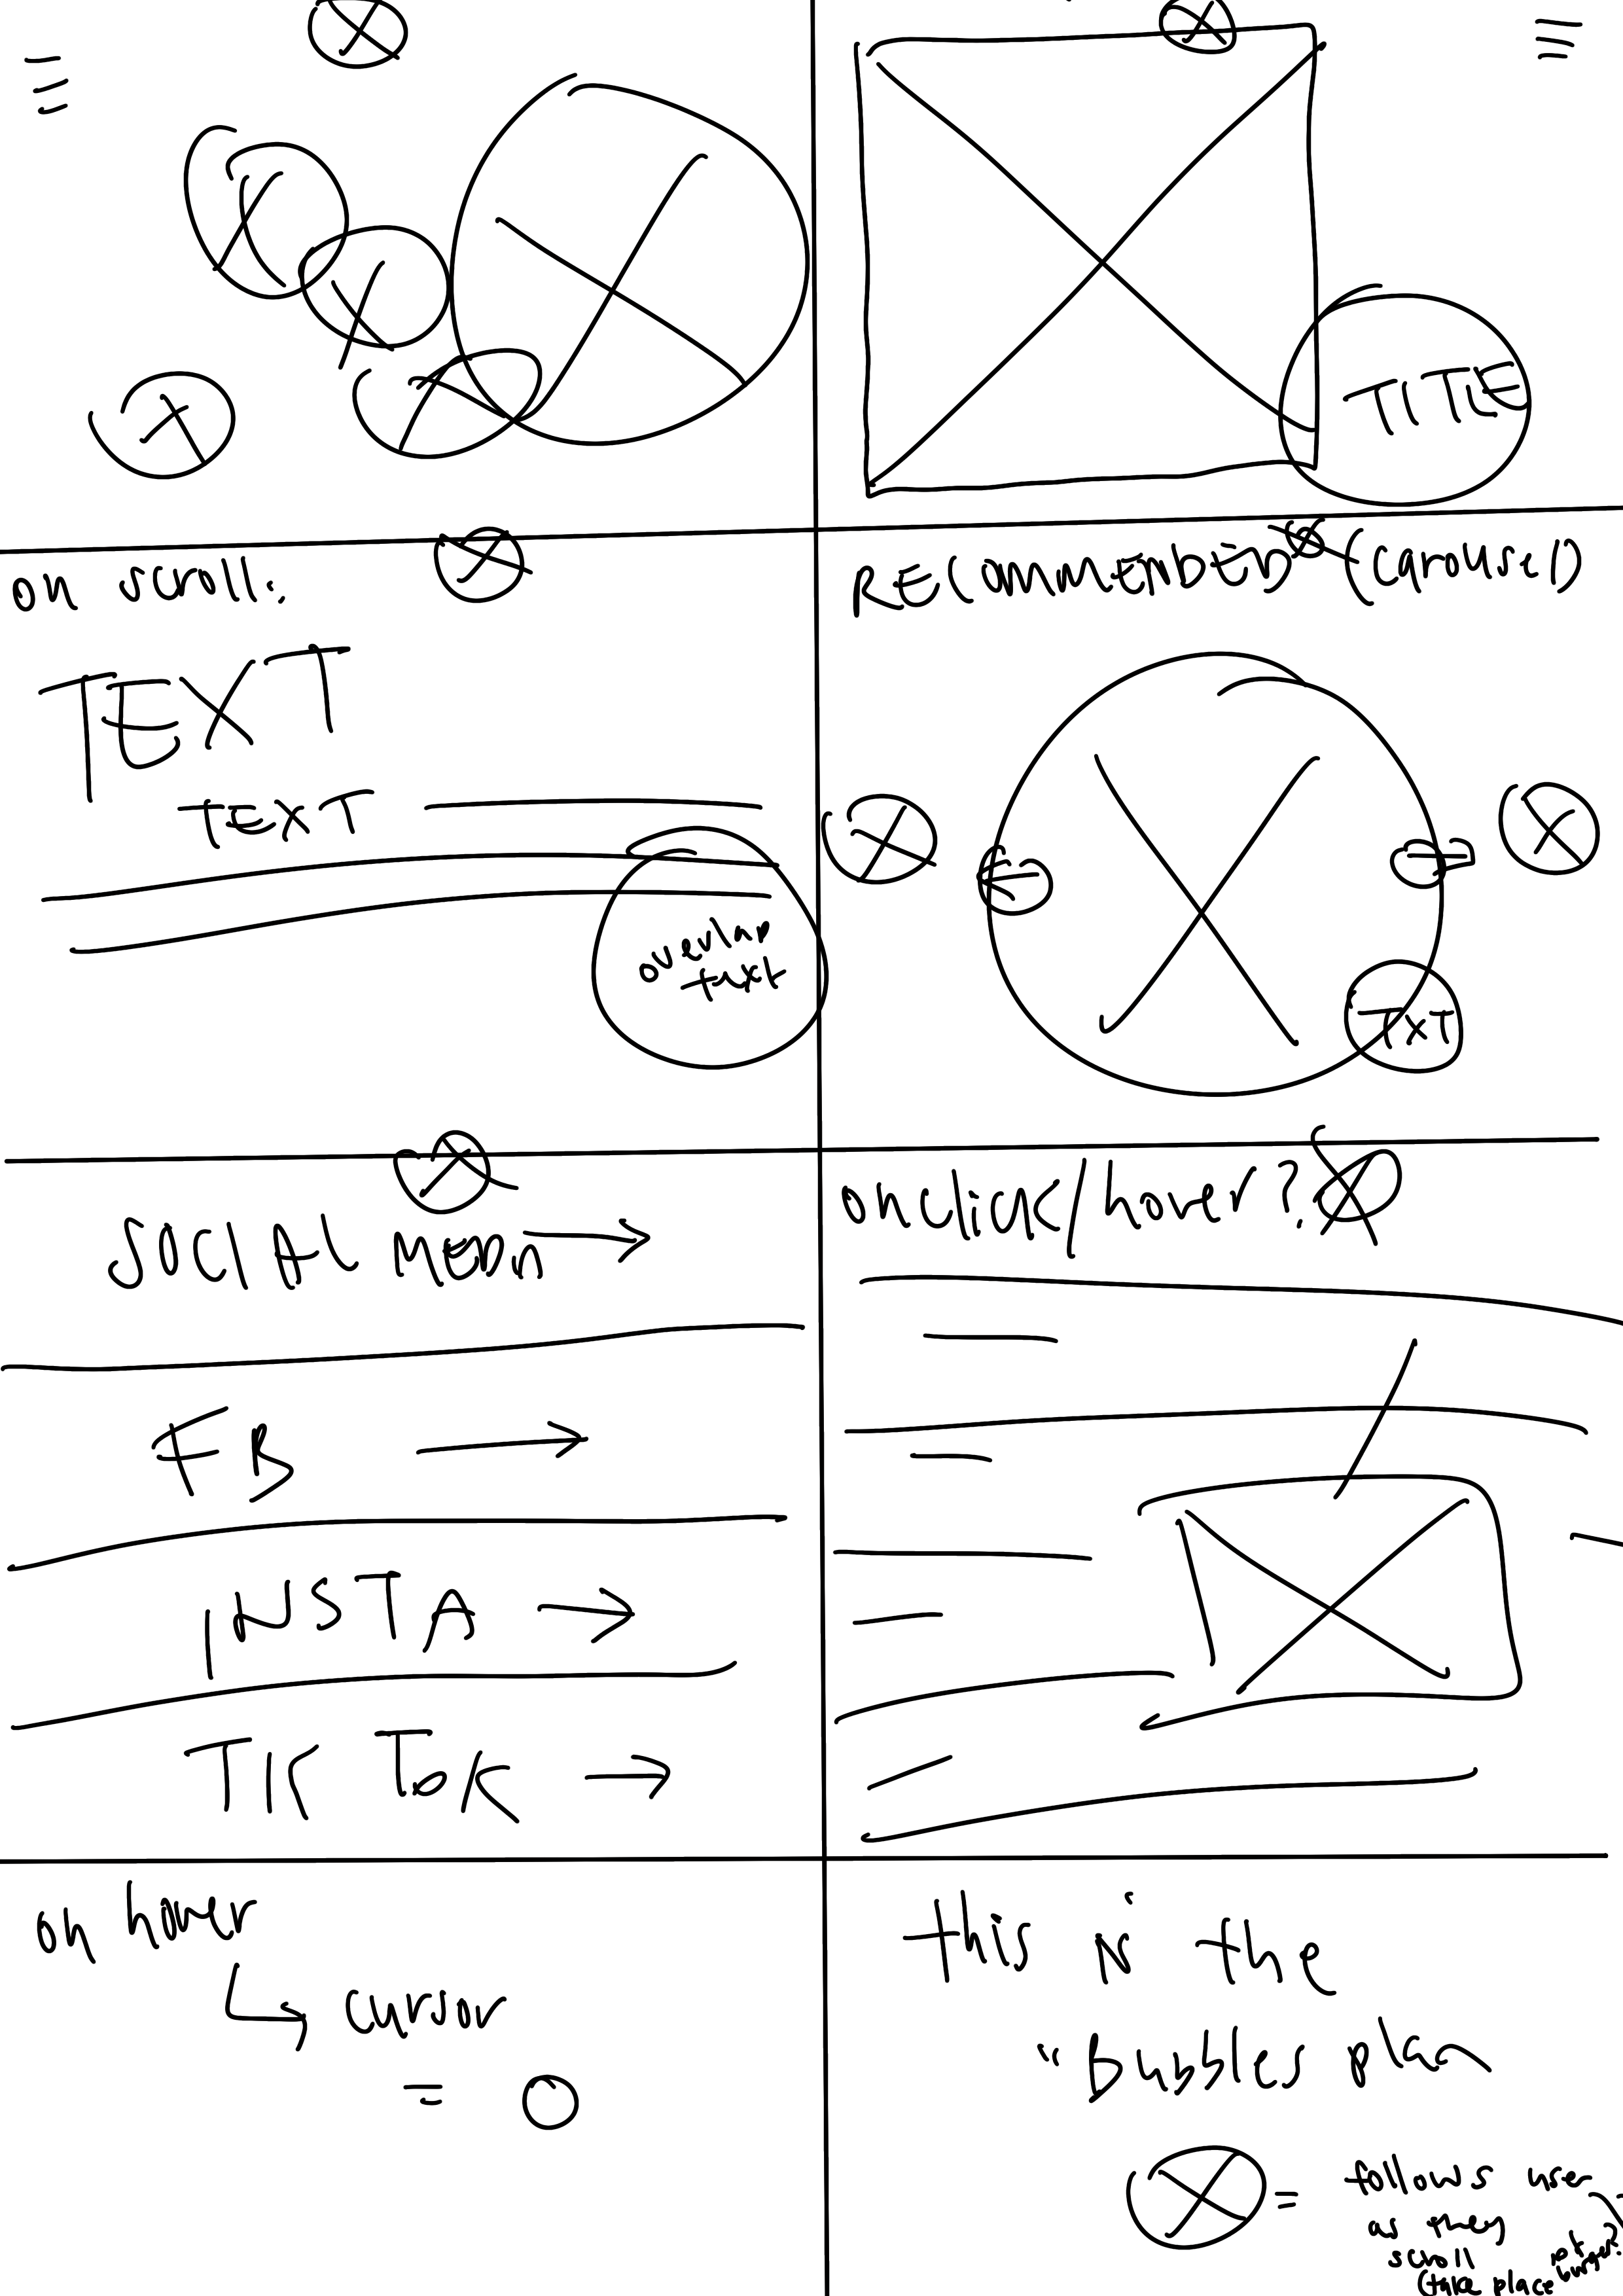 TITLE
on scroll:
TEXT
TEXT
overlap
text
RECOMMENDED (carousel)
TXT
SOCIAL MEDIA →
FB →
INSTA →
TIK TOK →
onclick/hover?
on hover
↳ cursor
= O
this is the
"Bubbles plan
= follows user
as they
scroll
(take place of
burger?